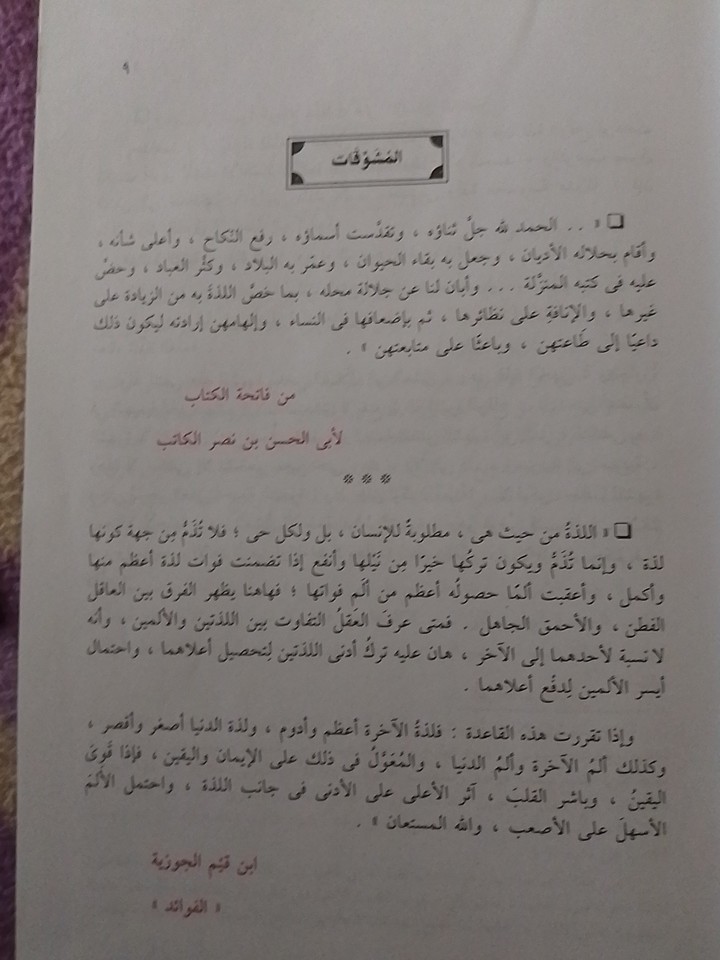 ٩
المُشَوِّقَات
« .. الحمد لله جلَّ ثناؤه ، وتقدَّست أسماؤه ، رفع النّكاح ، وأعلى شأنه ،
وأقام بحلاله الأديان ، وجعل به بقاء الحيوان ، وعمّر به البلاد ، وكثّر العباد ، وحضّ
عليه فى كتبه المنزّلة ... وأبان لنا عن جلالة محله ، بما خصَّ اللذةَ به من الزيادة على
غيرها ، والإنافةِ على نظائرها ، ثم بإضعافها فى النساء ، وإلهامهن إرادته ليكون ذلك
داعيًا إلى طَاعتهن ، وباعثًا على متابعتهن » .
من فاتحة الكتاب
لأبى الحسن بن نصر الكاتب
***
« اللذةُ من حيث هى ، مطلوبةٌ للإنسان ، بل ولكل حى ؛ فلا تُذَمُّ مِن جهة كونها
لذة ، وإنما تُذَمُّ ويكون تركُها خيرًا مِن نَيْلها وأنفع إذا تضمنت فوات لذة أعظم منها
وأكمل ، وأعقبت ألمًا حصولُه أعظم من ألَمِ فواتها ؛ فهاهنا يظهر الفرق بين العاقل
الفطن ، والأحمق الجاهل . فمتى عرفَ العَقلُ التفاوت بين اللذتين والألمين ، وأنه
لا نسبة لأحدهما إلى الآخر ، هان عليه تركُ أدنى اللذتين لِتحصيل أعلاهما ، واحتمال
أيسر الألمين لِدفْع أعلاهما .
وإذا تقررت هذه القاعدة : فلذةُ الآخرة أعظم وأدوم ، ولذة الدنيا أصغر وأقصر ،
وكذلك ألَمُ الآخرة وألَمُ الدنيا ، والمُعَوَّلُ فى ذلك على الإيمان واليقين ، فإذا قَوِىَ
اليقينُ ، وباشر القلبَ ، آثر الأعلى على الأدنى فى جانب اللذة ، واحتمل الألمَ
الأسهلَ على الأصعب ، والله المستعان » .
ابن قيِّم الجوزية
« الفوائد »